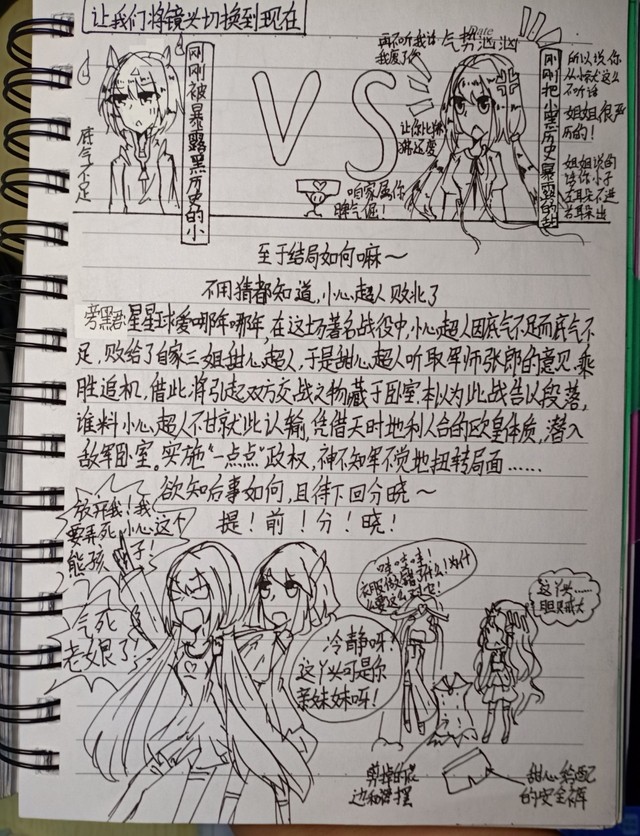 让我们将镜头切换到现在
底气不足
刚刚被暴露黑历史的小
VS
再不听我话
我废了你
气势汹汹
Date
让你比麻
麻还要
咱家属你
脾气倔!
刚刚把小黑历史暴露的甜
所以说你
从小就这么
不听话
姐姐很严
厉的!
姐姐说的
话你小子
左耳朵不进
右耳朵出
至于结局如何嘛~
不用猜都知道,小心超人败北了
旁黑君:星星球爱哪年哪年,在这场著名战役中,小心超人因底气不足而底气不
足,败给了自家三姐甜心超人,于是甜心超人听取军师张郎的意见.乘
胜追机,借此将引起双方交战之物藏于卧室.本以为此战告以段落,
谁料小心超人不甘就此认输,凭借天时地利人合的欧皇体质,潜入
敌军卧室。实施“一点点”政权,神不知军不觉地扭转局面……
欲知后事如何,且待下回分晓~
提!前!分!晓!
放开我!我
要弄死小心这个
熊孩子!
气死
老娘了!
冷静呀,
这丫头可是你
亲妹妹呀!
哇哇哇!
衣服做错了什么!为什
么要这么对它!
这丫头……
胆贼大
剪掉的花
边和裙摆
甜心给配
的安全裤